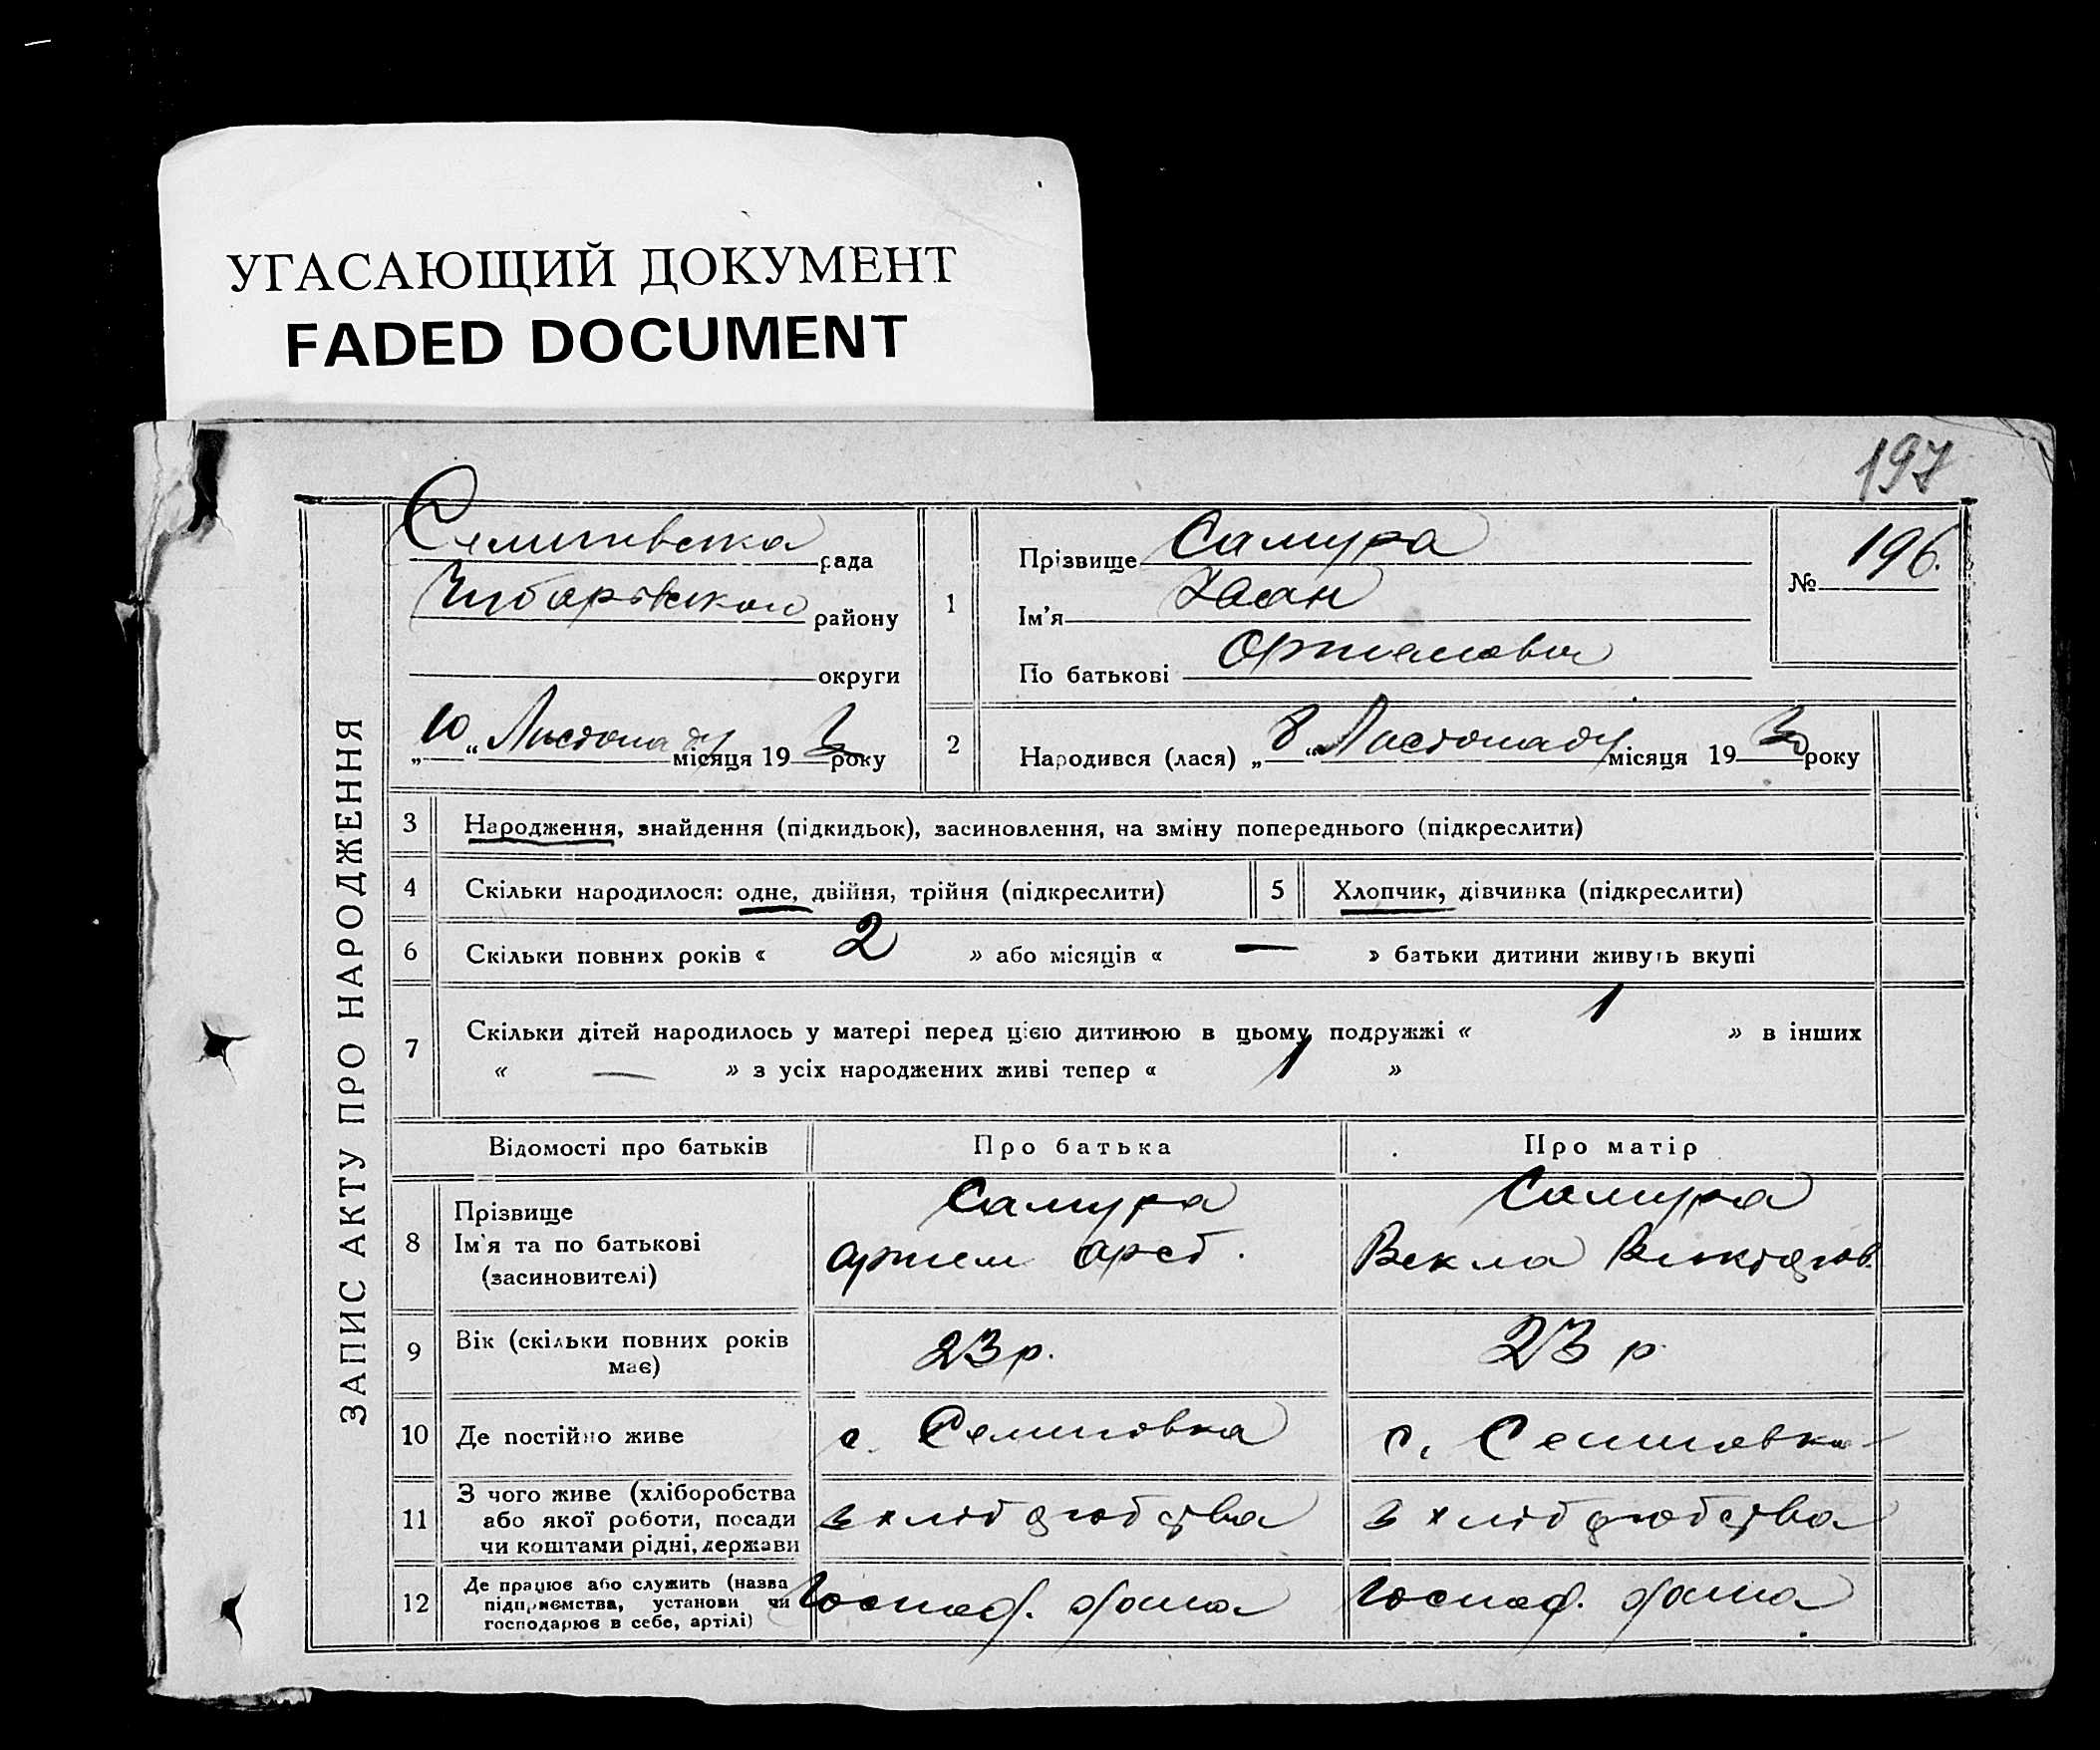 УГАСАЮЩИЙ ДОКУМЕНТ
FADED DOCUMENT
197
ЗАПИС АКТУ ПРО НАРОДЖЕННЯ
рада
району
округи
„10“ Листопаду місяця 193 року
1
Прізвище Самура
Ім'я Іван
По батькові
№ 196.
2 Народився (лася) „8“ Листопаду місяця 193 року
3 Народження, знайдення (підкидьок), засиновлення, на зміну попереднього (підкреслити)
4 Скільки народилося: одне, двійня, трійня (підкреслити)
5 Хлопчик, дівчинка (підкреслити)
6 Скільки повних років « 2 » або місяців « — » батьки дитини живуть вкупі
7 Скільки дітей народилось у матері перед цією дитиною в цьому подружжі « 1 » в інших
« — » з усіх народжених живі тепер « 1 »
Відомості про батьків Про батька Про матір
8 Прізвище Самура Самура
Ім'я та по батькові Векла
(засиновителі)
9 Вік (скільки повних років 23 р. 23 р
має)
10 Де постійно живе с. с.
11 З чого живе (хліборобства
або якої роботи, посади з хліборобства з хліборобства
чи коштами рідні, держави
12 Де працює або служить (назва
підприємства, установи чи
господарює в себе, артілі)